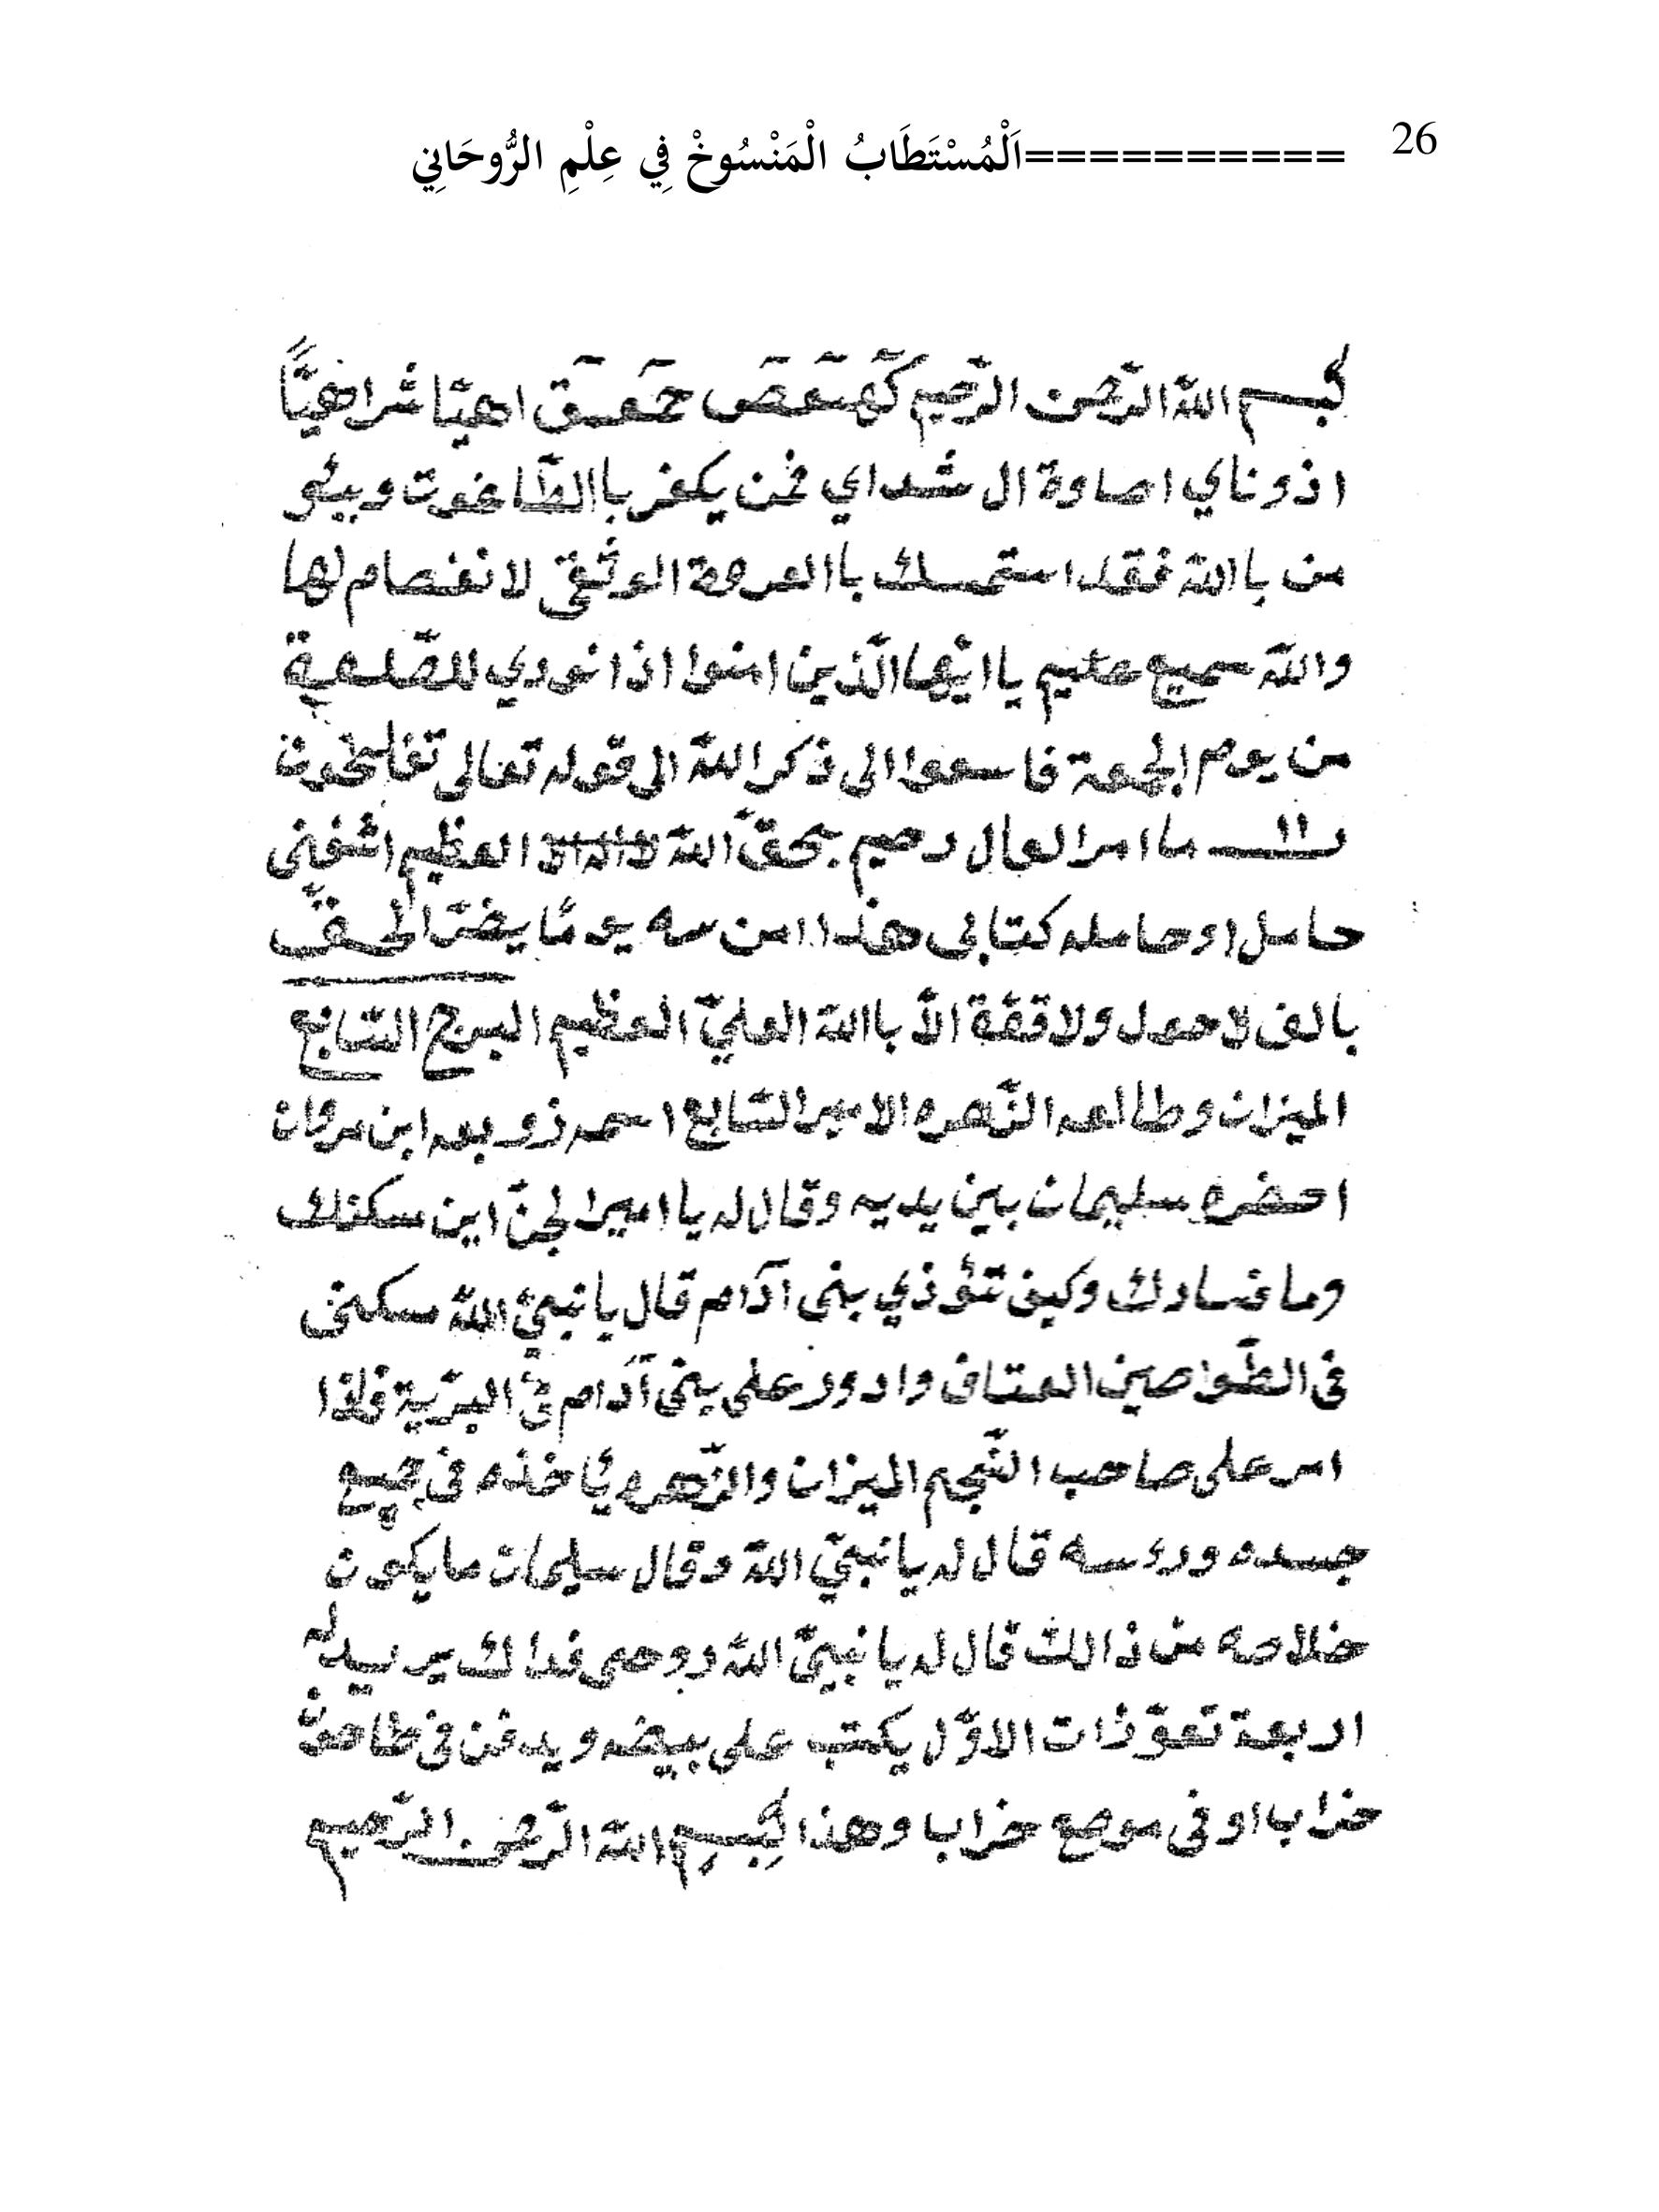 26 ==========اَلْمُسْتَطَابُ الْمَنْسُوخْ فِي عِلْمِ الرُّوحَانِي
بسم اللّه الرّحمن الرّحيم كٓهٓيٓعٓصٓ حٓمٓعٓسٓقٓ اهيّا شراهيّاً
اذوناي اصاوة ال شداي فمن يكفر باالطّاغوت ويئو
من باللّه فقد استمسك باالعروة الوثقى لانفصام لها
واللّه سميع عليم يا ايّها الّذين امنوا اذا نودي للصّلوة
من يوم الجمعة فاسعوا الى ذكر اللّه الى قوله تعالى تفلحون
ما امر العال رحيم بحقّ اللّه العظيم اشفينى
حامل او حامله كتابى هذا
بالف لاحول ولاقوّة الاّ باالله العليّ العظيم البرج السّابع
الميزان وطالعه الزّهره الامير السّابع احمد زوبعه ابن مروان
احضره سليمان بين يديه وقال له يا امير الجنّ اين سكنك
وما فسادك وكيف تئوذي بنى آدام قال يا نبيّ اللّه سكنى
فى الطّواحين العتاق وادور على بنى آدام فى البرّية فاذا
امر على صاحب النّجم الميزان والزّهره يأخذه فى جميع
جسده ورءسه قال له يا نبيّ اللّه وقال سليمان ما يكون
خلاصه من ذالك قال له يا نبيّ اللّه روحى فداك يريد له
اربعة تعوّذات الاوّل يكتب على بيضه ويدفن فى طاحون
خراب او فى موضع خراب وهذا بسم اللّه الرّحمن الرّحيم